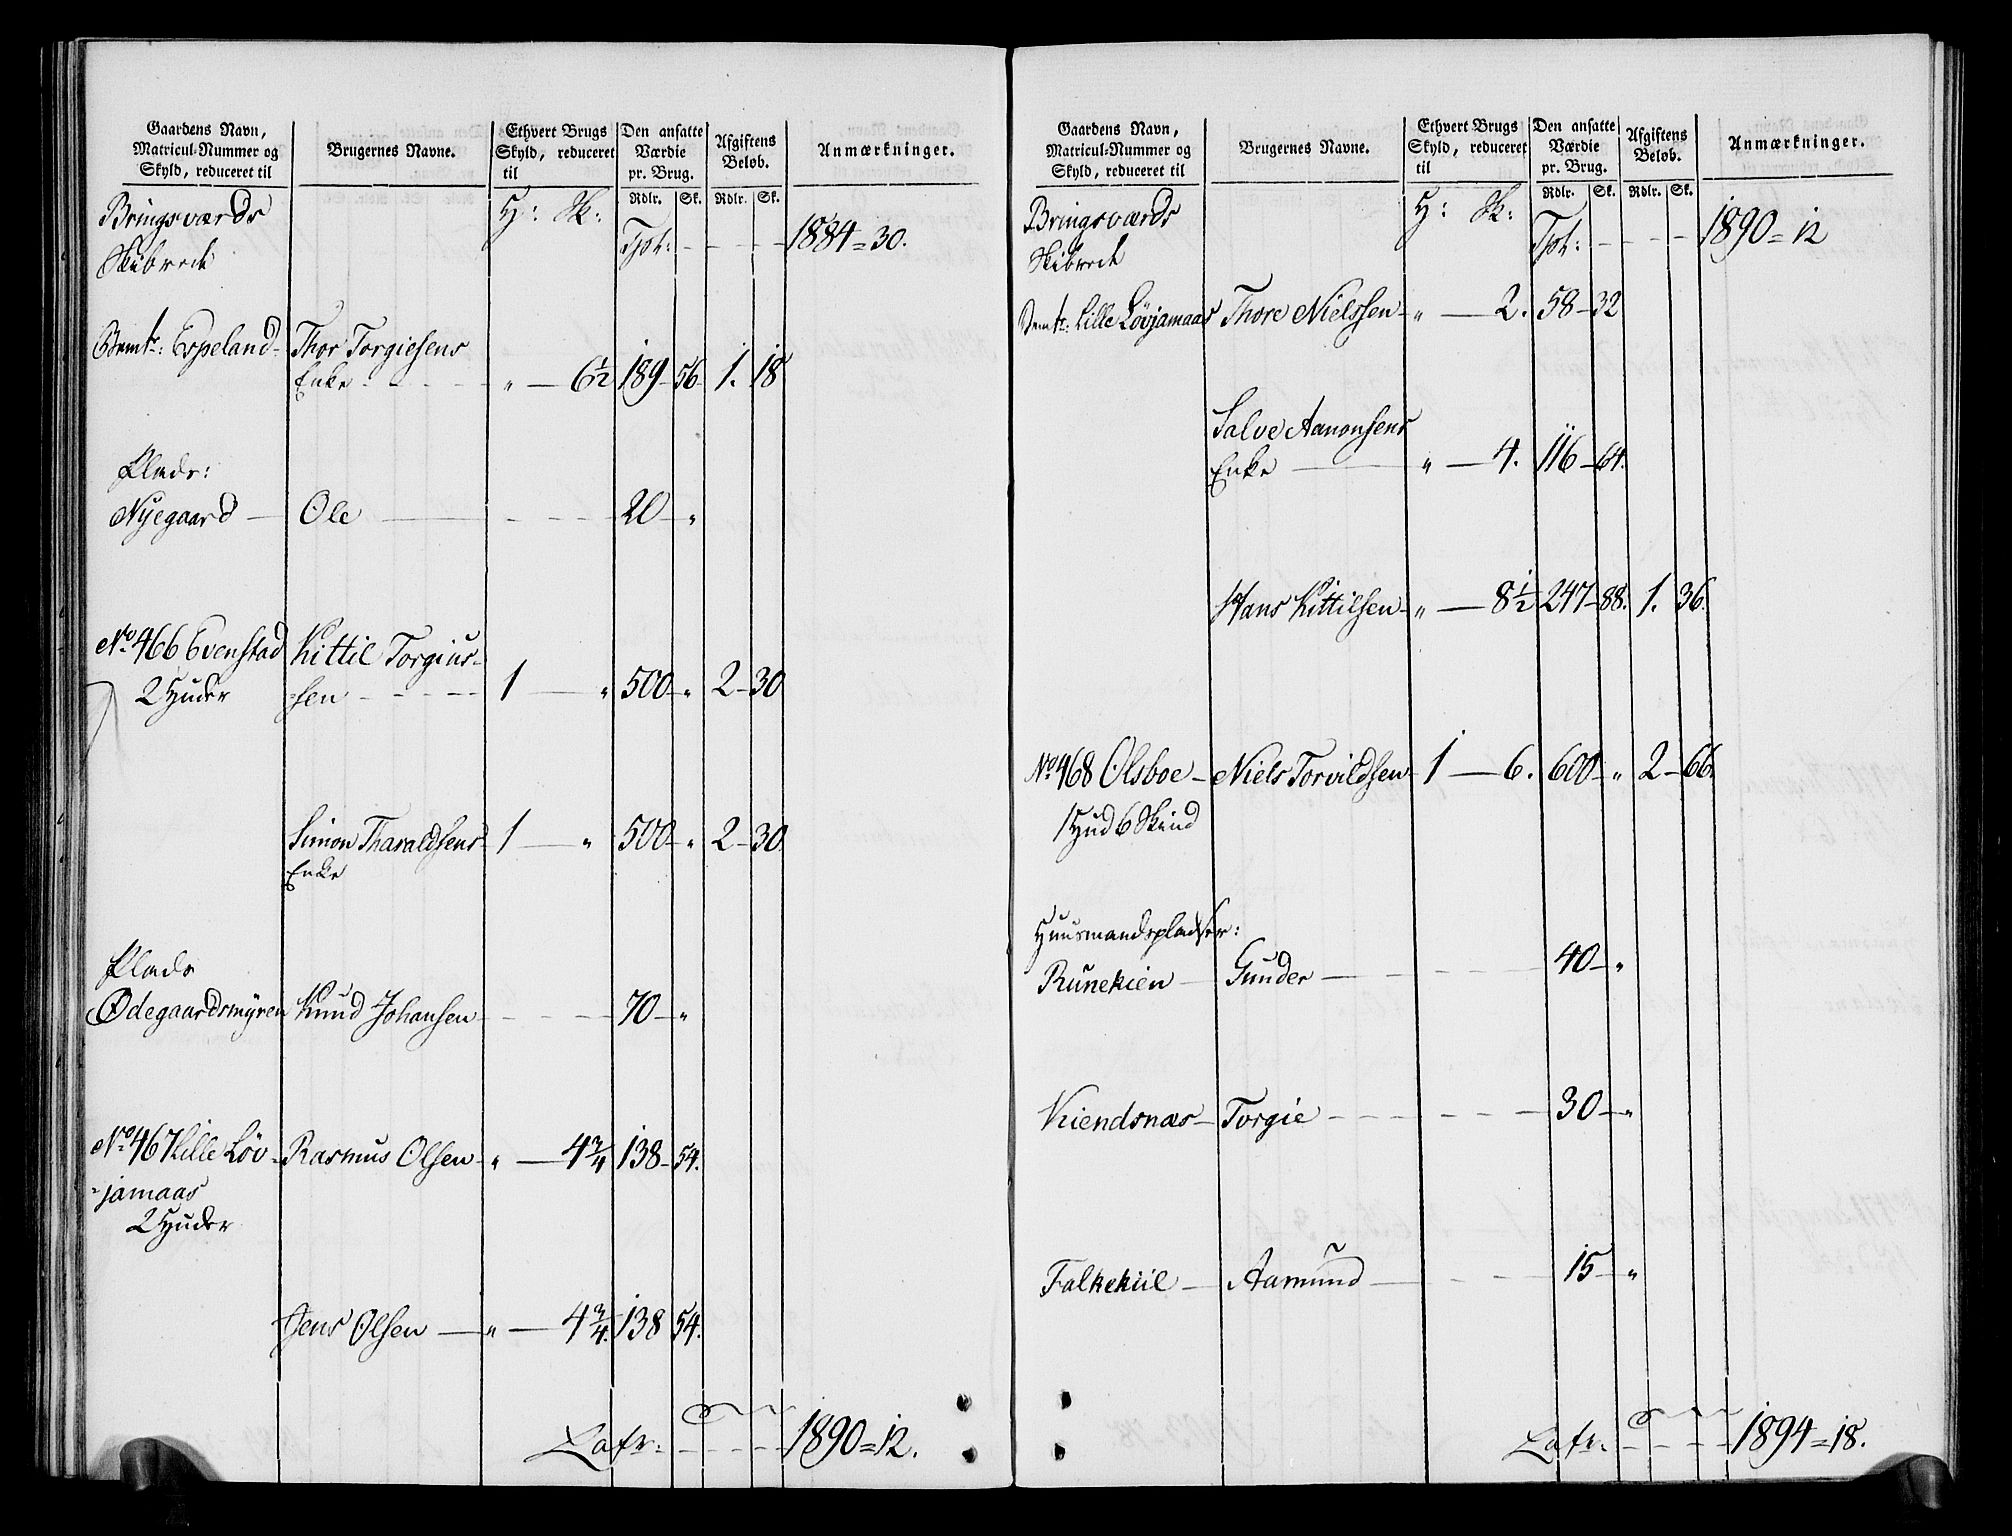 Gaardens Navn,
Matricul-Nummer og
Skyld, reduceret til
Brugernes Navne.
Ethvert Brugs
Skyld, reduceret
til
Den ansatte
Værdie
pr. Brug.
Afgiftens
Beløb.
Anmærkninger.
Rdlr. Sk. Rdlr. Sk.
Bringsværds H: Sk:
Skibrede Tpt: - - - - 1884 = 30.
Bemte: Espeland- Thor Torgiesens
Enke - - - - - „ — 6½ 189 - 56 - 1. 18
Plads:
Nyegaard — Ole — - - - - 20 - „
No. 466 Evenstad Kittil Torgius-
2 Huder =sen - - - - 1 — „ 500 - „ 2 - 30
Simon Tharaldsens- 1 — „ 500 - „ 2 - 30.
Enke
Plads
Ødegaardsmyren Knud Johansen - - - - 70 - „
No. 467 Lille Løv- Rasmus Olsen - „ — 4¾ 138 - 54.
=jamaas
2 Huder
Jens Olsen — „ — 4¾ 138 54.
Lafr: - - - - 1890 = 12.
Gaardens Navn,
Matricul-Nummer og
Skyld, reduceret til
Brugernes Navne.
Ethvert Brugs
Skyld, reduceret
til
Den ansatte
Værdie
pr. Brug.
Afgiftens
Beløb.
Anmærkninger.
Rdlr. Sk. Rdlr. Sk.
Bringsværds H: Sk:
Skibrede Tpt: - - - - 1890 = 12
Bemte: Lille Løvjamaas Thore Nielssen - „ — 2. 58 - 32
Salve Aanonsens
Enke — „ — 4. 116 - 64.
Hans Kittilsen - „ — 8½ 247 - 88. 1. 36.
No. 468 Olsboe - Niels Torvildsen - 1 — 6. 600 - „ 2 - 66.
1 Hud 6 Skind
Huusmandspladser:
Runekien — Gunder — - - - - 40 - „
Kiendsnæs — Torgie - - - - 30 - „
Falkekiil — Aamund — - - - - 15 - „
Lafr: - - - - 1894 = 18.